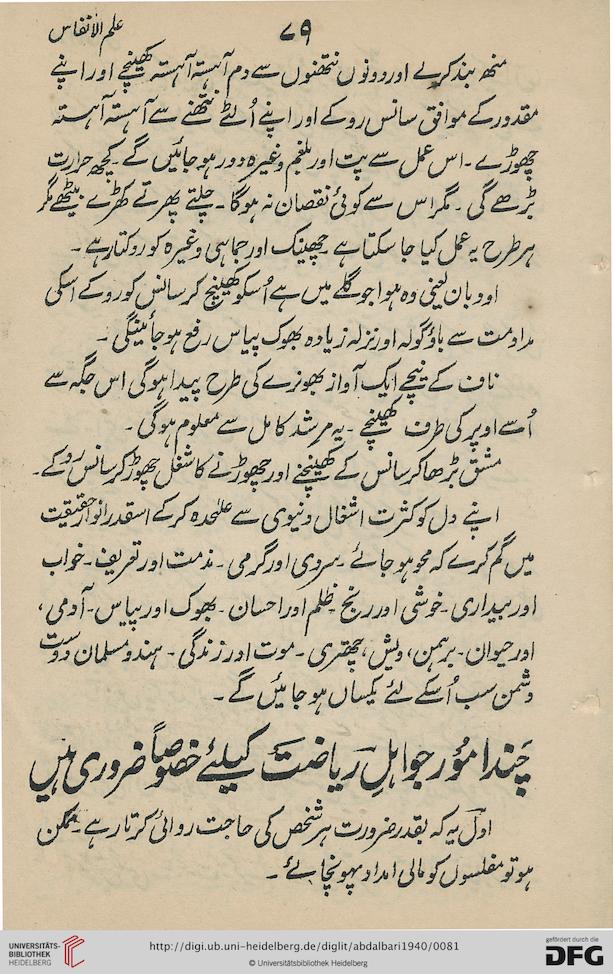 علم الانفاس
۷۹
منھ بند کرلے اور دونوں نتھنوں سے دم آہستہ آہستہ کھینچے اور اپنے
مقدور کے موافق سانس روکے اور اپنے اُلٹے نتھنے سے آہستہ آہستہ
چھوڑے ۔ اس عمل سے پت اور بلغم وغیرہ دور ہو جائیں گے ۔ کچھ حرارت
بڑھے گی ۔ مگر اس سے کوئی نقصان نہ ہوگا ۔ چلتے پھرتے کھڑے بیٹھے مگر
ہر طرح یہ عمل کیا جا سکتا ہے ۔ چھینک اور جماہی وغیرہ کو روکتا رہے ۔
اودبان یعنی وہ ہوا جو گلے میں ہے اُسکو کھینچ کر سانس کو روکے اسکی
مداومت سے باؤ گولہ اور نزلہ زیادہ بھوک پیاس رفع ہو جائینگی ۔
ناف کے نیچے ایک آواز بھونرے کی طرح پیدا ہوگی اس جگہ سے
اُسے اوپر کی طرف کھینچے ۔ یہ مرشد کامل سے معلوم ہوگی ۔
مشق بڑھا کر سانس کے کھینچنے اور چھوڑنے کا شغل چھوڑ کر سانس روکے ۔
اپنے دل کو کثرت اشغال دنیوی سے علٰحدہ کرکے اسقدر انوار حقیقت
میں گم کرے کہ محو ہو جائے ۔ سردی اور گرمی ۔ مذمت اور تعریف ۔ خواب
اور بیداری ۔ خوشی اور رنج ۔ ظلم اور احسان ۔ بھوک اور پیاس ۔ آدمی،
اور حیوان ۔ برہمن، ویش، چھتری ۔ موت اور زندگی ۔ ہندو مسلمان دوست
دشمن سب اُسکے لئے یکساں ہو جائیں گے ۔
چند امور جو اہلِ ریاضت کیلئے خصوصاً ضروری ہیں
اول یہ کہ بقدر ضرورت ہر شخص کی حاجت روائی کرتا رہے ۔ ممکن
ہو تو مفلسوں کو مالی امداد پہونچائے ۔
UNIVERSITÄTS-
BIBLIOTHEK
HEIDELBERG
http://digi.ub.uni-heidelberg.de/diglit/abdalbari1940/0081
© Universitätsbibliothek Heidelberg
gefördert durch die
DFG